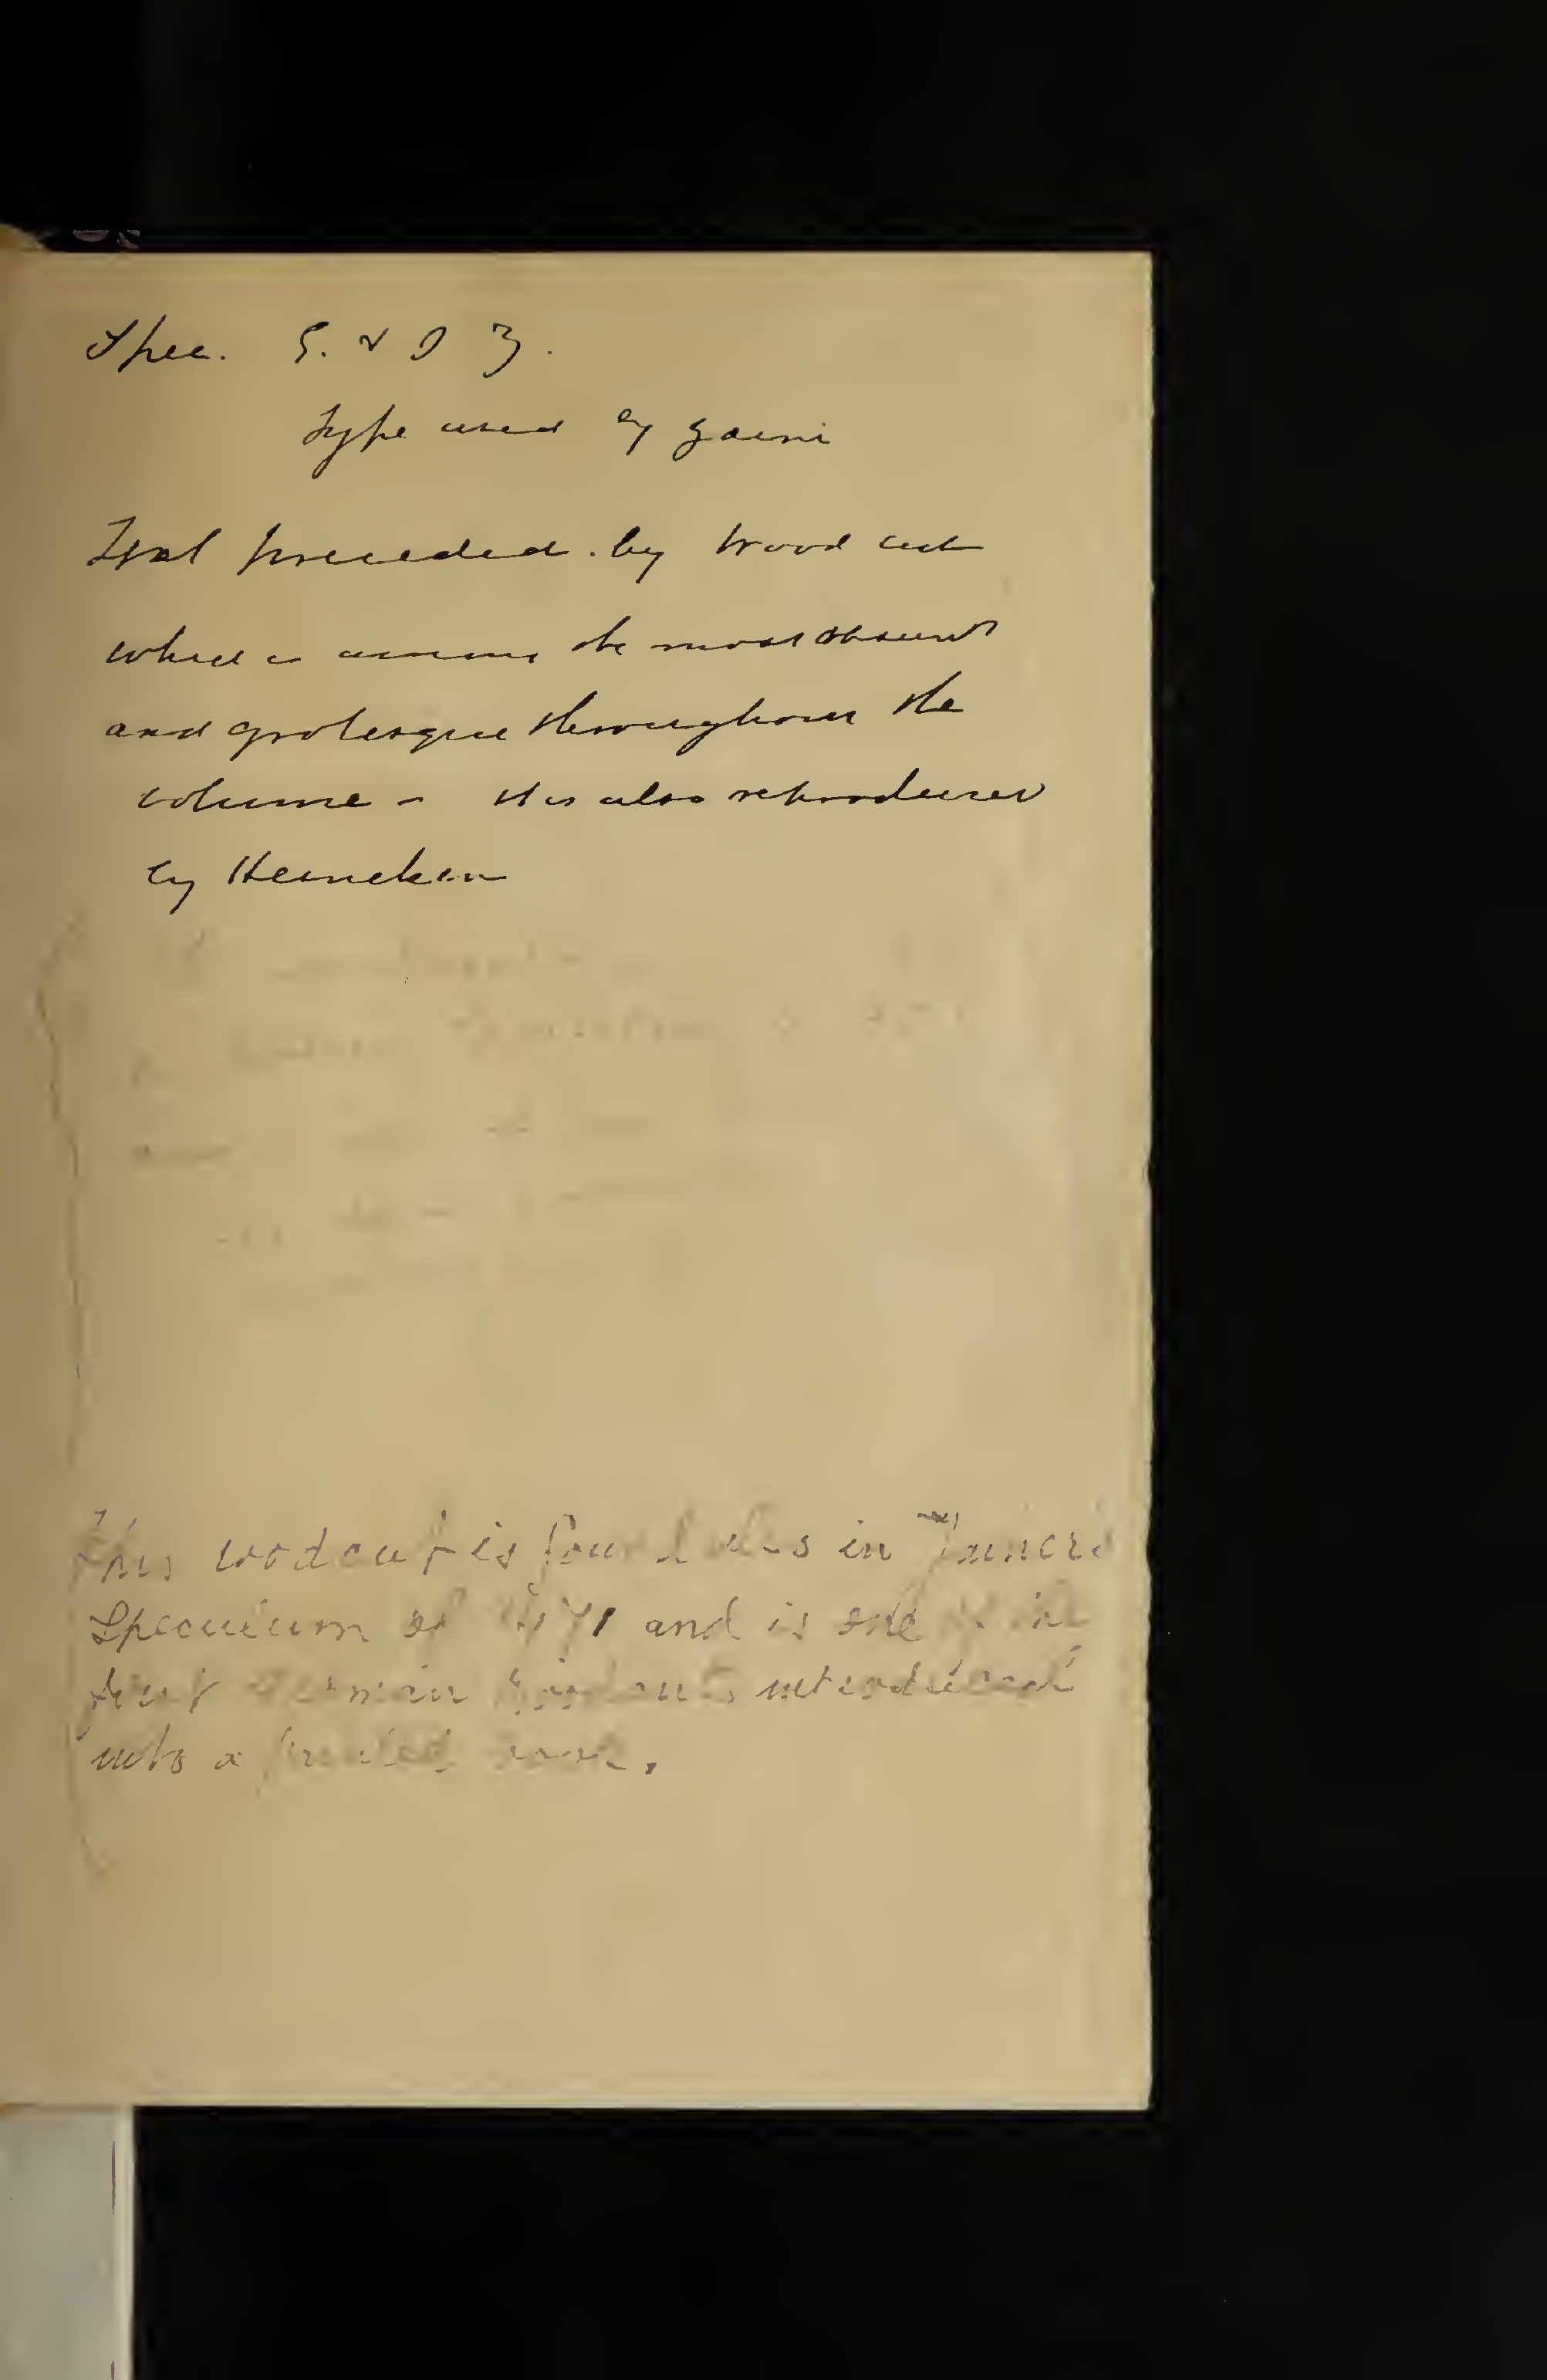 Spec. G. & D 3.
Type used by Zaini
Text preceded by wood cut
which is among the most absurd
and grotesque throughout the
volume - It is also reproduced
by Heineken
This woodcut is found also in
Speculum of 1471 and is one of the
first German woodcuts introduced
into a printed book.